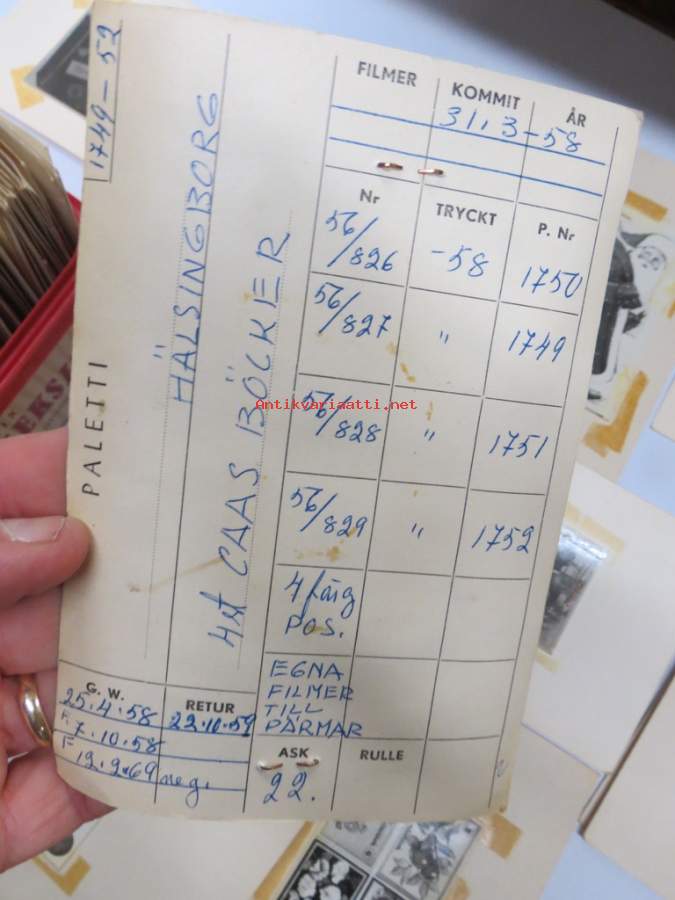 1749-52
PALETTI
HÄLSINGBORG
4 st CAAS BÖCKER
FILMER KOMMIT ÅR
31.3-58
Nr TRYCKT P. Nr
56/826 -58 1750
56/827 " 1749
56/828 " 1751
56/829 " 1752
4 färg
POS.
EGNA
FILMER
TILL
PÄRMAR
G. W. RETUR
25.4.58 22.10.59
F. 7.10.58
F 12.2.69 neg.
ASK RULLE
22.
Antikvariaatti.net